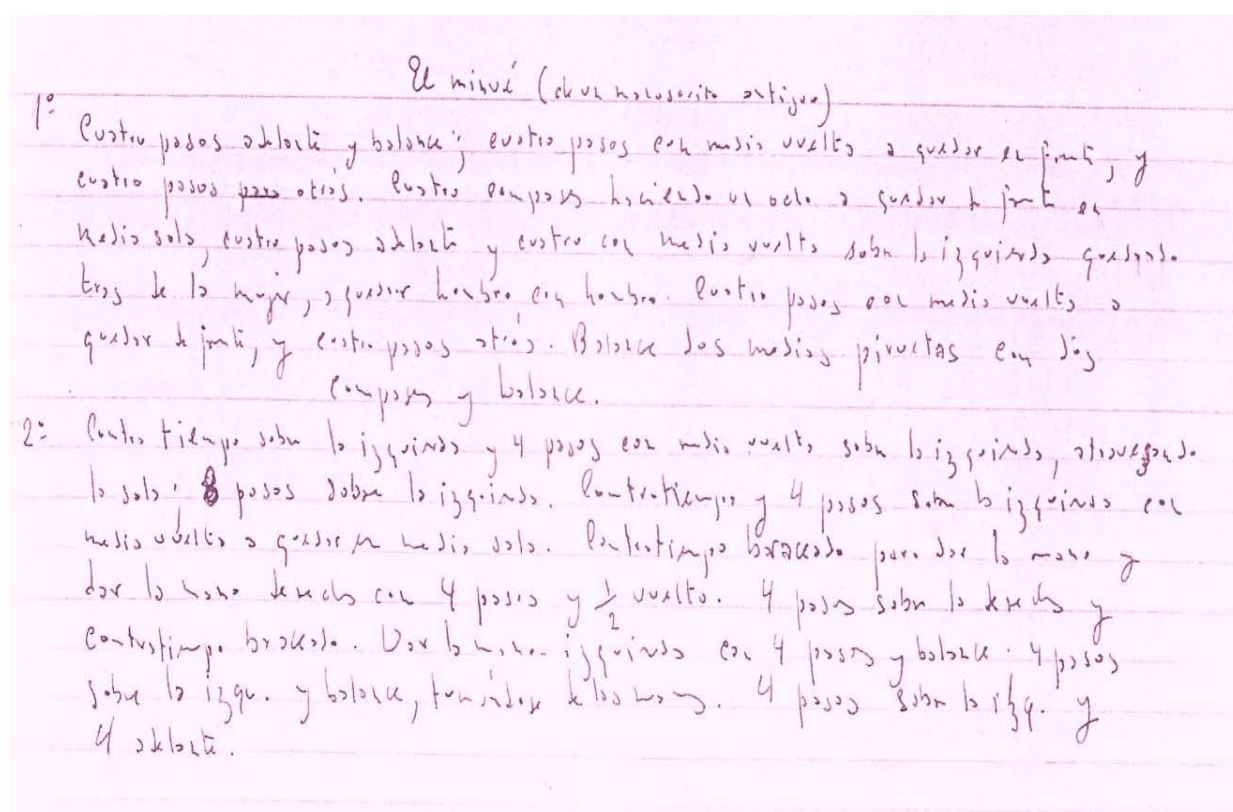 El minué (de un manuscrito antiguo)
1º
Cuatro pasos adelante y balance; cuatro pasos con media vuelta a quedar en frente, y
cuatro pasos atrás. Cuatro compases haciendo un ocho a quedar de frente en
media sala, cuatro pasos adelante y cuatro con media vuelta sobre la izquierda quedando
tras de la mujer, a quedar hombro con hombro. Cuatro pasos con media vuelta a
quedar de frente, y cuatro pasos atrás. Balance dos medias piruetas con dos
compases y balance.
2º Contra tiempo sobre la izquierda y 4 pasos con media vuelta sobre la izquierda, atravesando
la sala; 8 pasos sobre la izquierda. Contratiempo y 4 pasos sobre la izquierda con
media vuelta a quedar en media sala. Contratiempo para dar la mano y
dar la mano derecha con 4 pasos y 1/2 vuelta. 4 pasos sobre la derecha y
contratiempo. Dar la mano izquierda con 4 pasos y balance. 4 pasos
sobre la izqu. y balance, tomándose de las manos. 4 pasos sobre la izq. y
4 adelante.